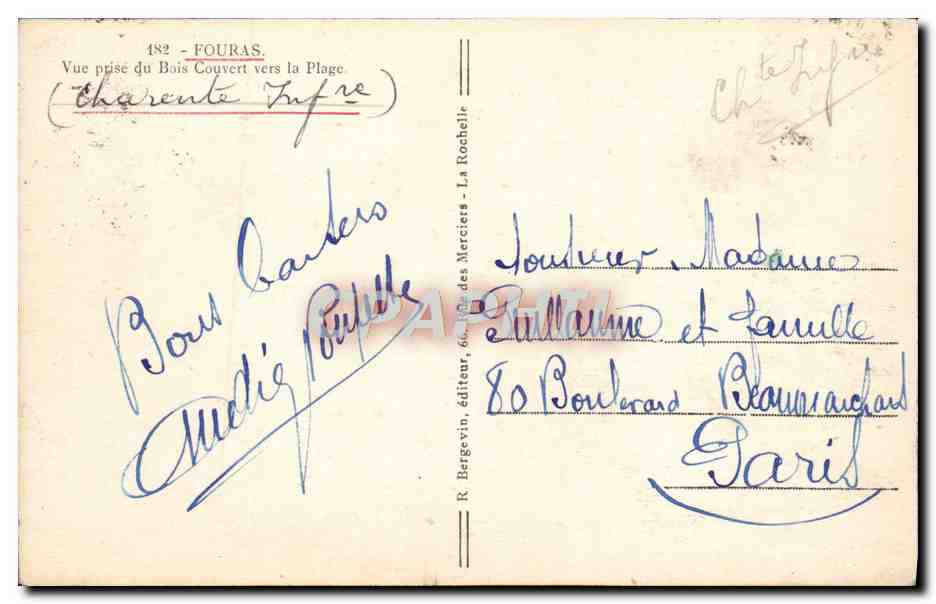 182 - FOURAS.
Vue prise du Bois Couvert vers la Plage.
(Charente Infre)
Bons baisers
R. Bergevin, éditeur, 66, Rue des Merciers - La Rochelle
Chte Infre
Monsieur, Madame
Guillaume et famille
80 Boulevard Beaumarchais
Paris
CPAPHIL